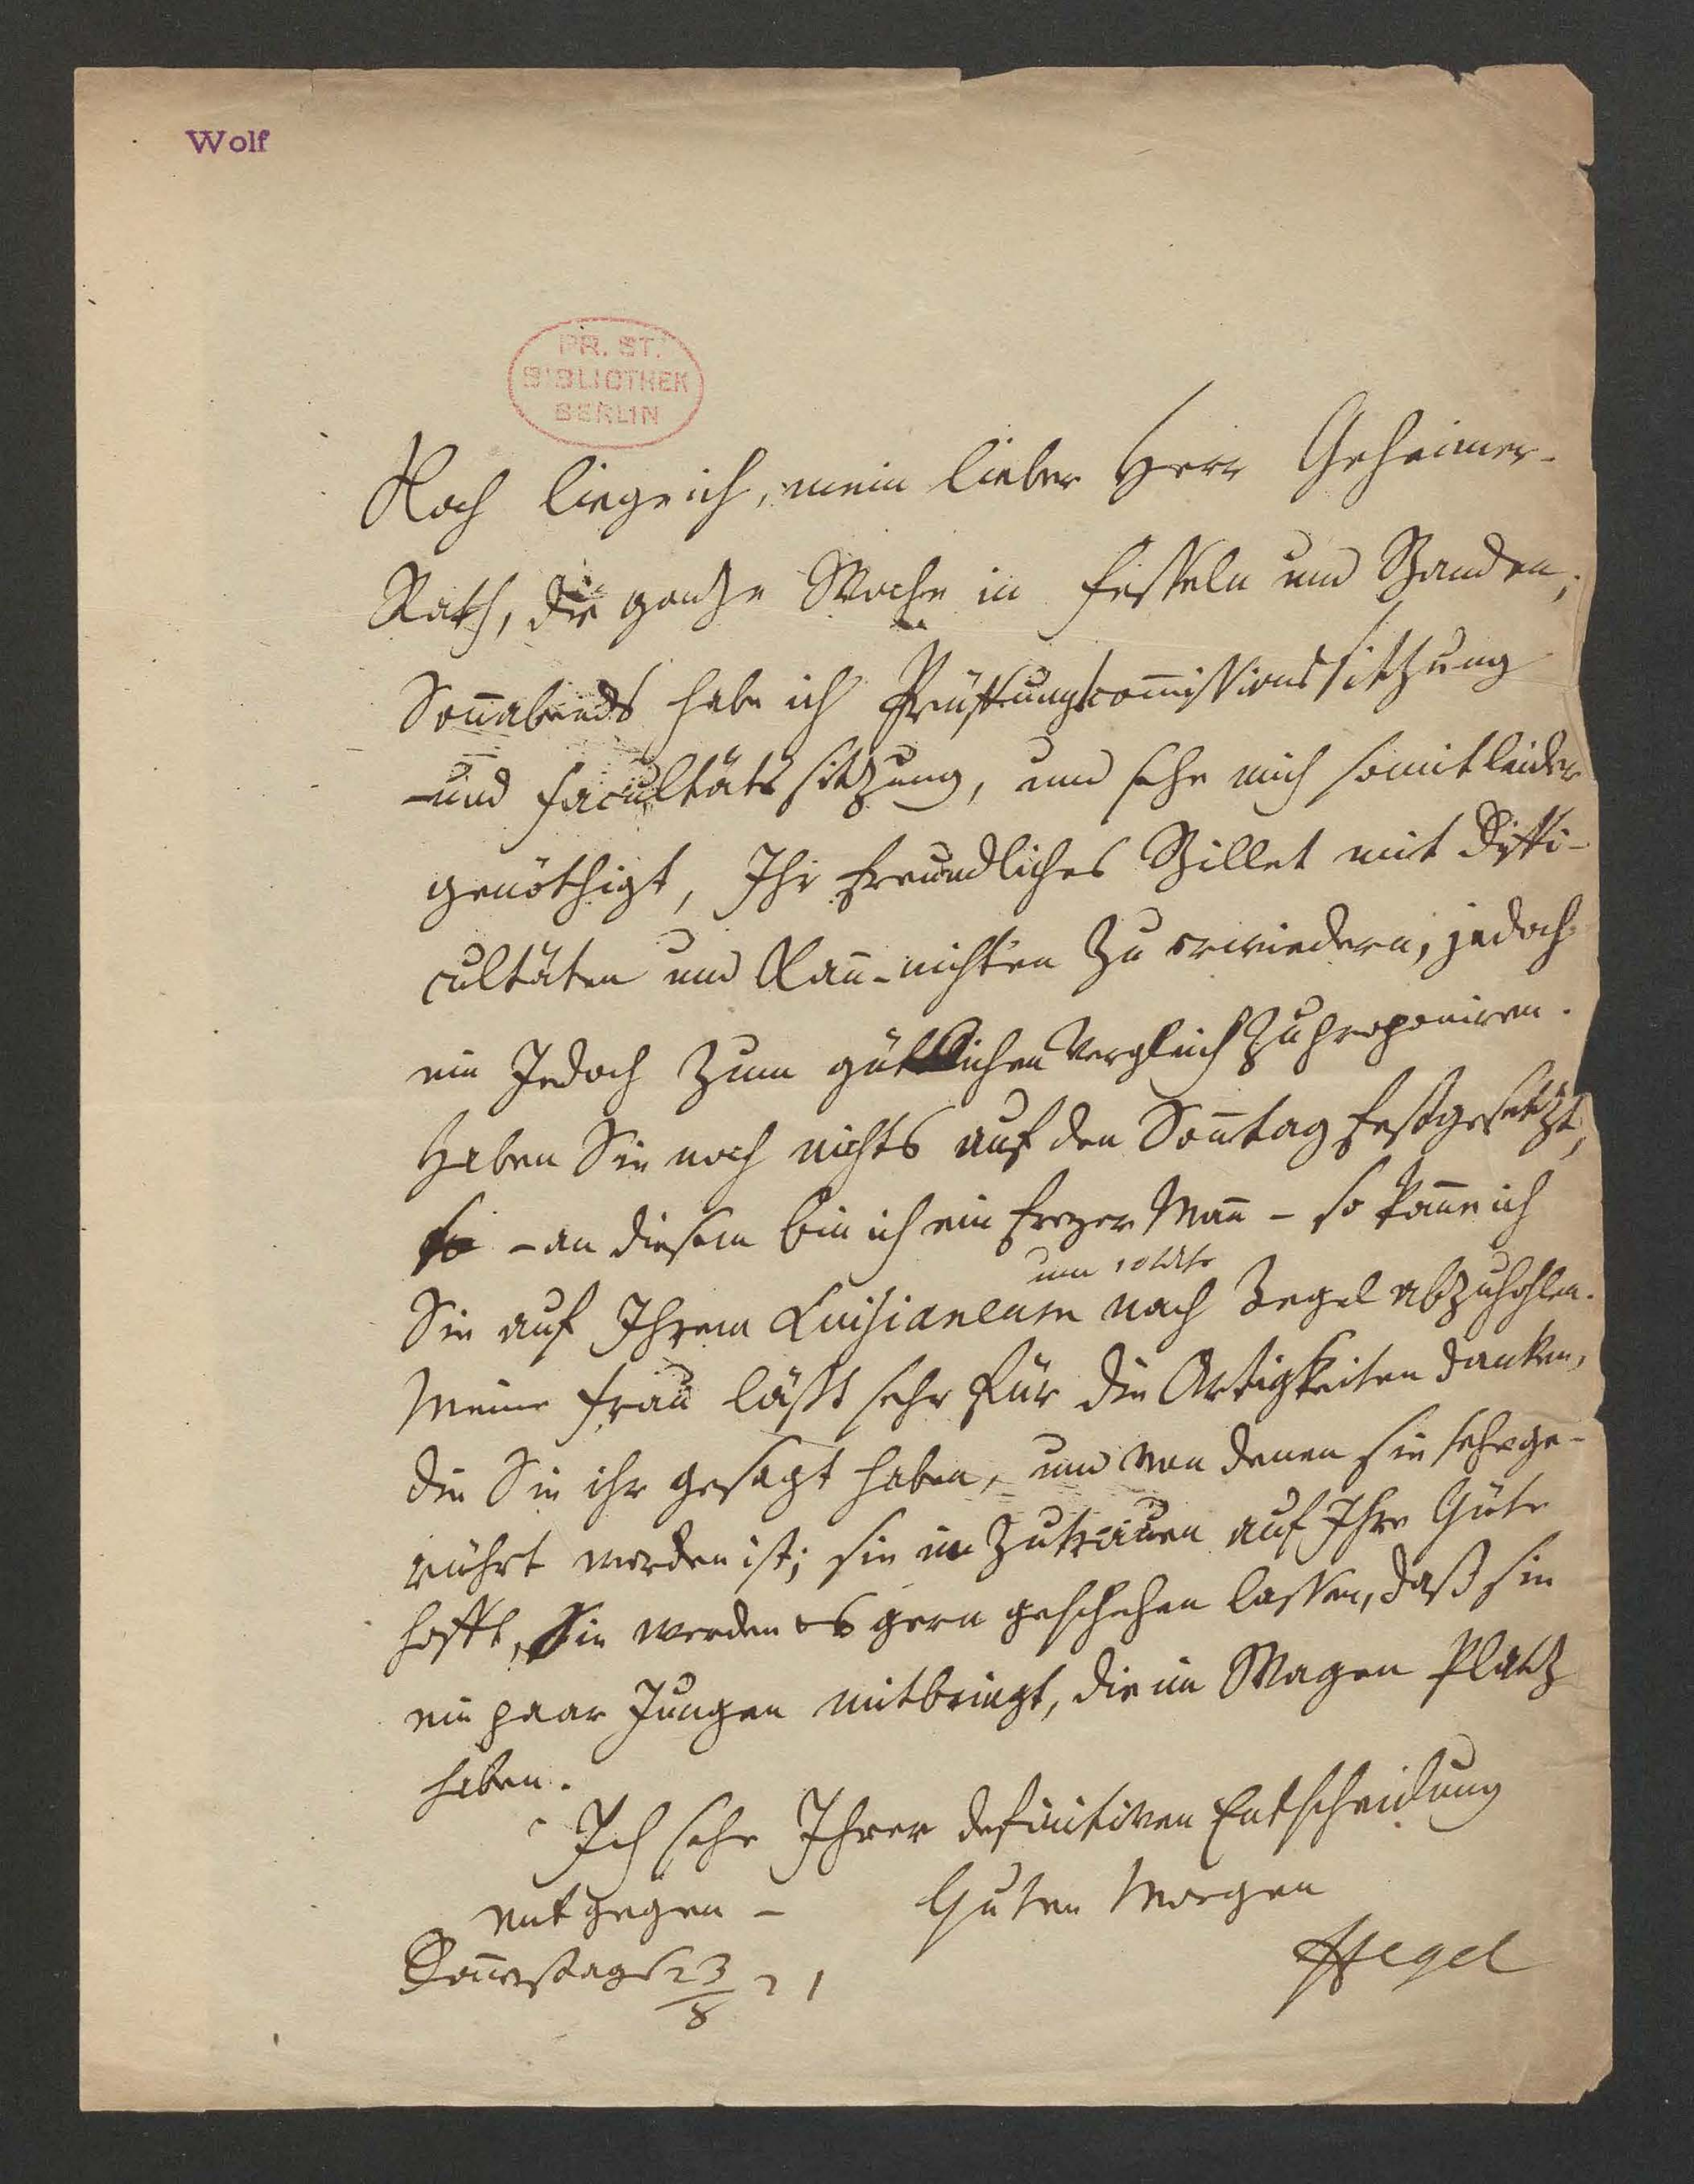 Wolf
PR. ST.
BIBLIOTHEK
BERLIN
Noch liege ich, mein lieber Herr Geheimer-
Rath, die ganze Woche in Fesseln und Banden;
Soñabends habe ich Prüffungscom̄issionssitzung
und Facultätssitzung, und sehe mich somit leider
genöthigt, Ihr freundliches Billet mit Diffi-
cultäten und Kañ-nichten zu erwiedern, jedoch
ein Jedoch zum gütlichen Vergleich zu proponiren.
Haben Sie noch nichts auf den Soñtag festgesetzt,
– an diesem bin ich ein freyer Mañ – so kom̄e ich
um 10 Uhr
Sie auf Ihrem Luisianeum nach Tegel abzuhohlen.
Meine Frau läßt sehr für die Artigkeiten danken,
die Sie ihr gesagt haben, und von denen sie sehr ge-
rührt worden ist; sie im Zutrauen auf Ihre Güte
hofft, Sie werden es gern geschehen lassen, daß sie
ein paar Jungen mitbringt, die im Wagen Platz
haben.
Ich sehe Ihrer definitiven Entscheidung
entgegen – Guten Morgen
Doñerstags 23/8 21 Hegel